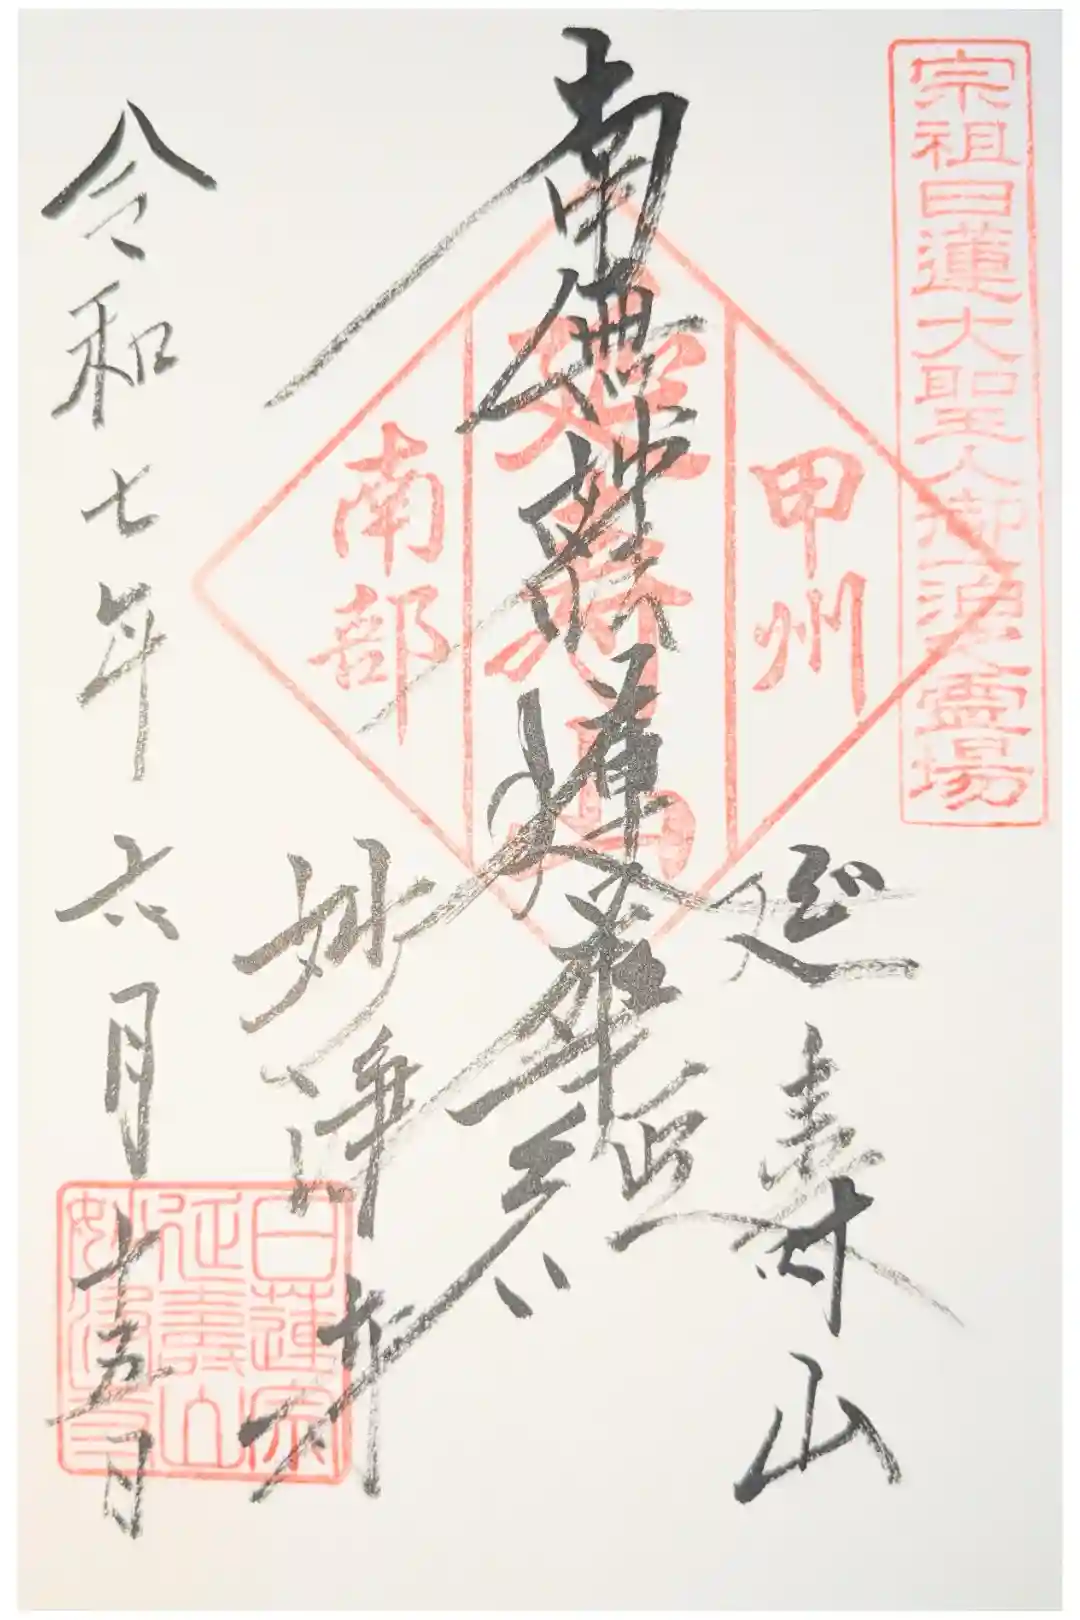 宗祖日蓮大聖人御一泊之霊場
甲州
延壽山
南部
南無妙法蓮華経
延壽山
妙浄寺
令和七年六月十五日
日蓮宗
延壽山
妙浄寺